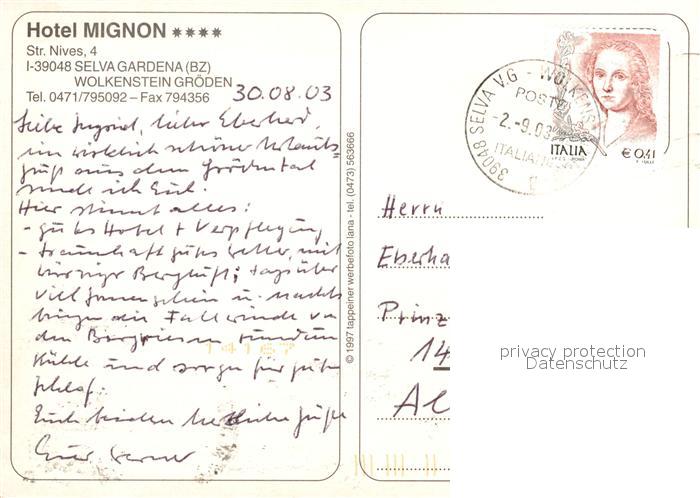 Hotel MIGNON ****
Str. Nives, 4
I-39048 SELVA GARDENA (BZ)
WOLKENSTEIN GRÖDEN
Tel. 0471/795092 – Fax 794356
30.08.03
Liebe Ingrid, lieber Eberhard,
ein wirklich schöner Urlaubs
gruß aus dem Grödental
sende ich Euch.
Hier stimmt alles:
- gutes Hotel + Verpflegung
- traumhaft gutes Wetter, mit
würziger Bergluft; tagsüber
viel Sonnenschein u. nachts
bringen die Fallwinde von
den Bergriesen rundum
Kühle und sorgen für guten
Schlaf.
Euch beiden herzliche Grüße
Euer Werner
14167
© 1997 tappeiner werbefoto lana - tel. (0473) 563666
39048 SELVA V.G - WOLKENST
POSTE
-2.-9.03
ITALIANE
ITALIA
€ 0,41
Herrn
Eberha
Prinz
14
Al
privacy protection
Datenschutz